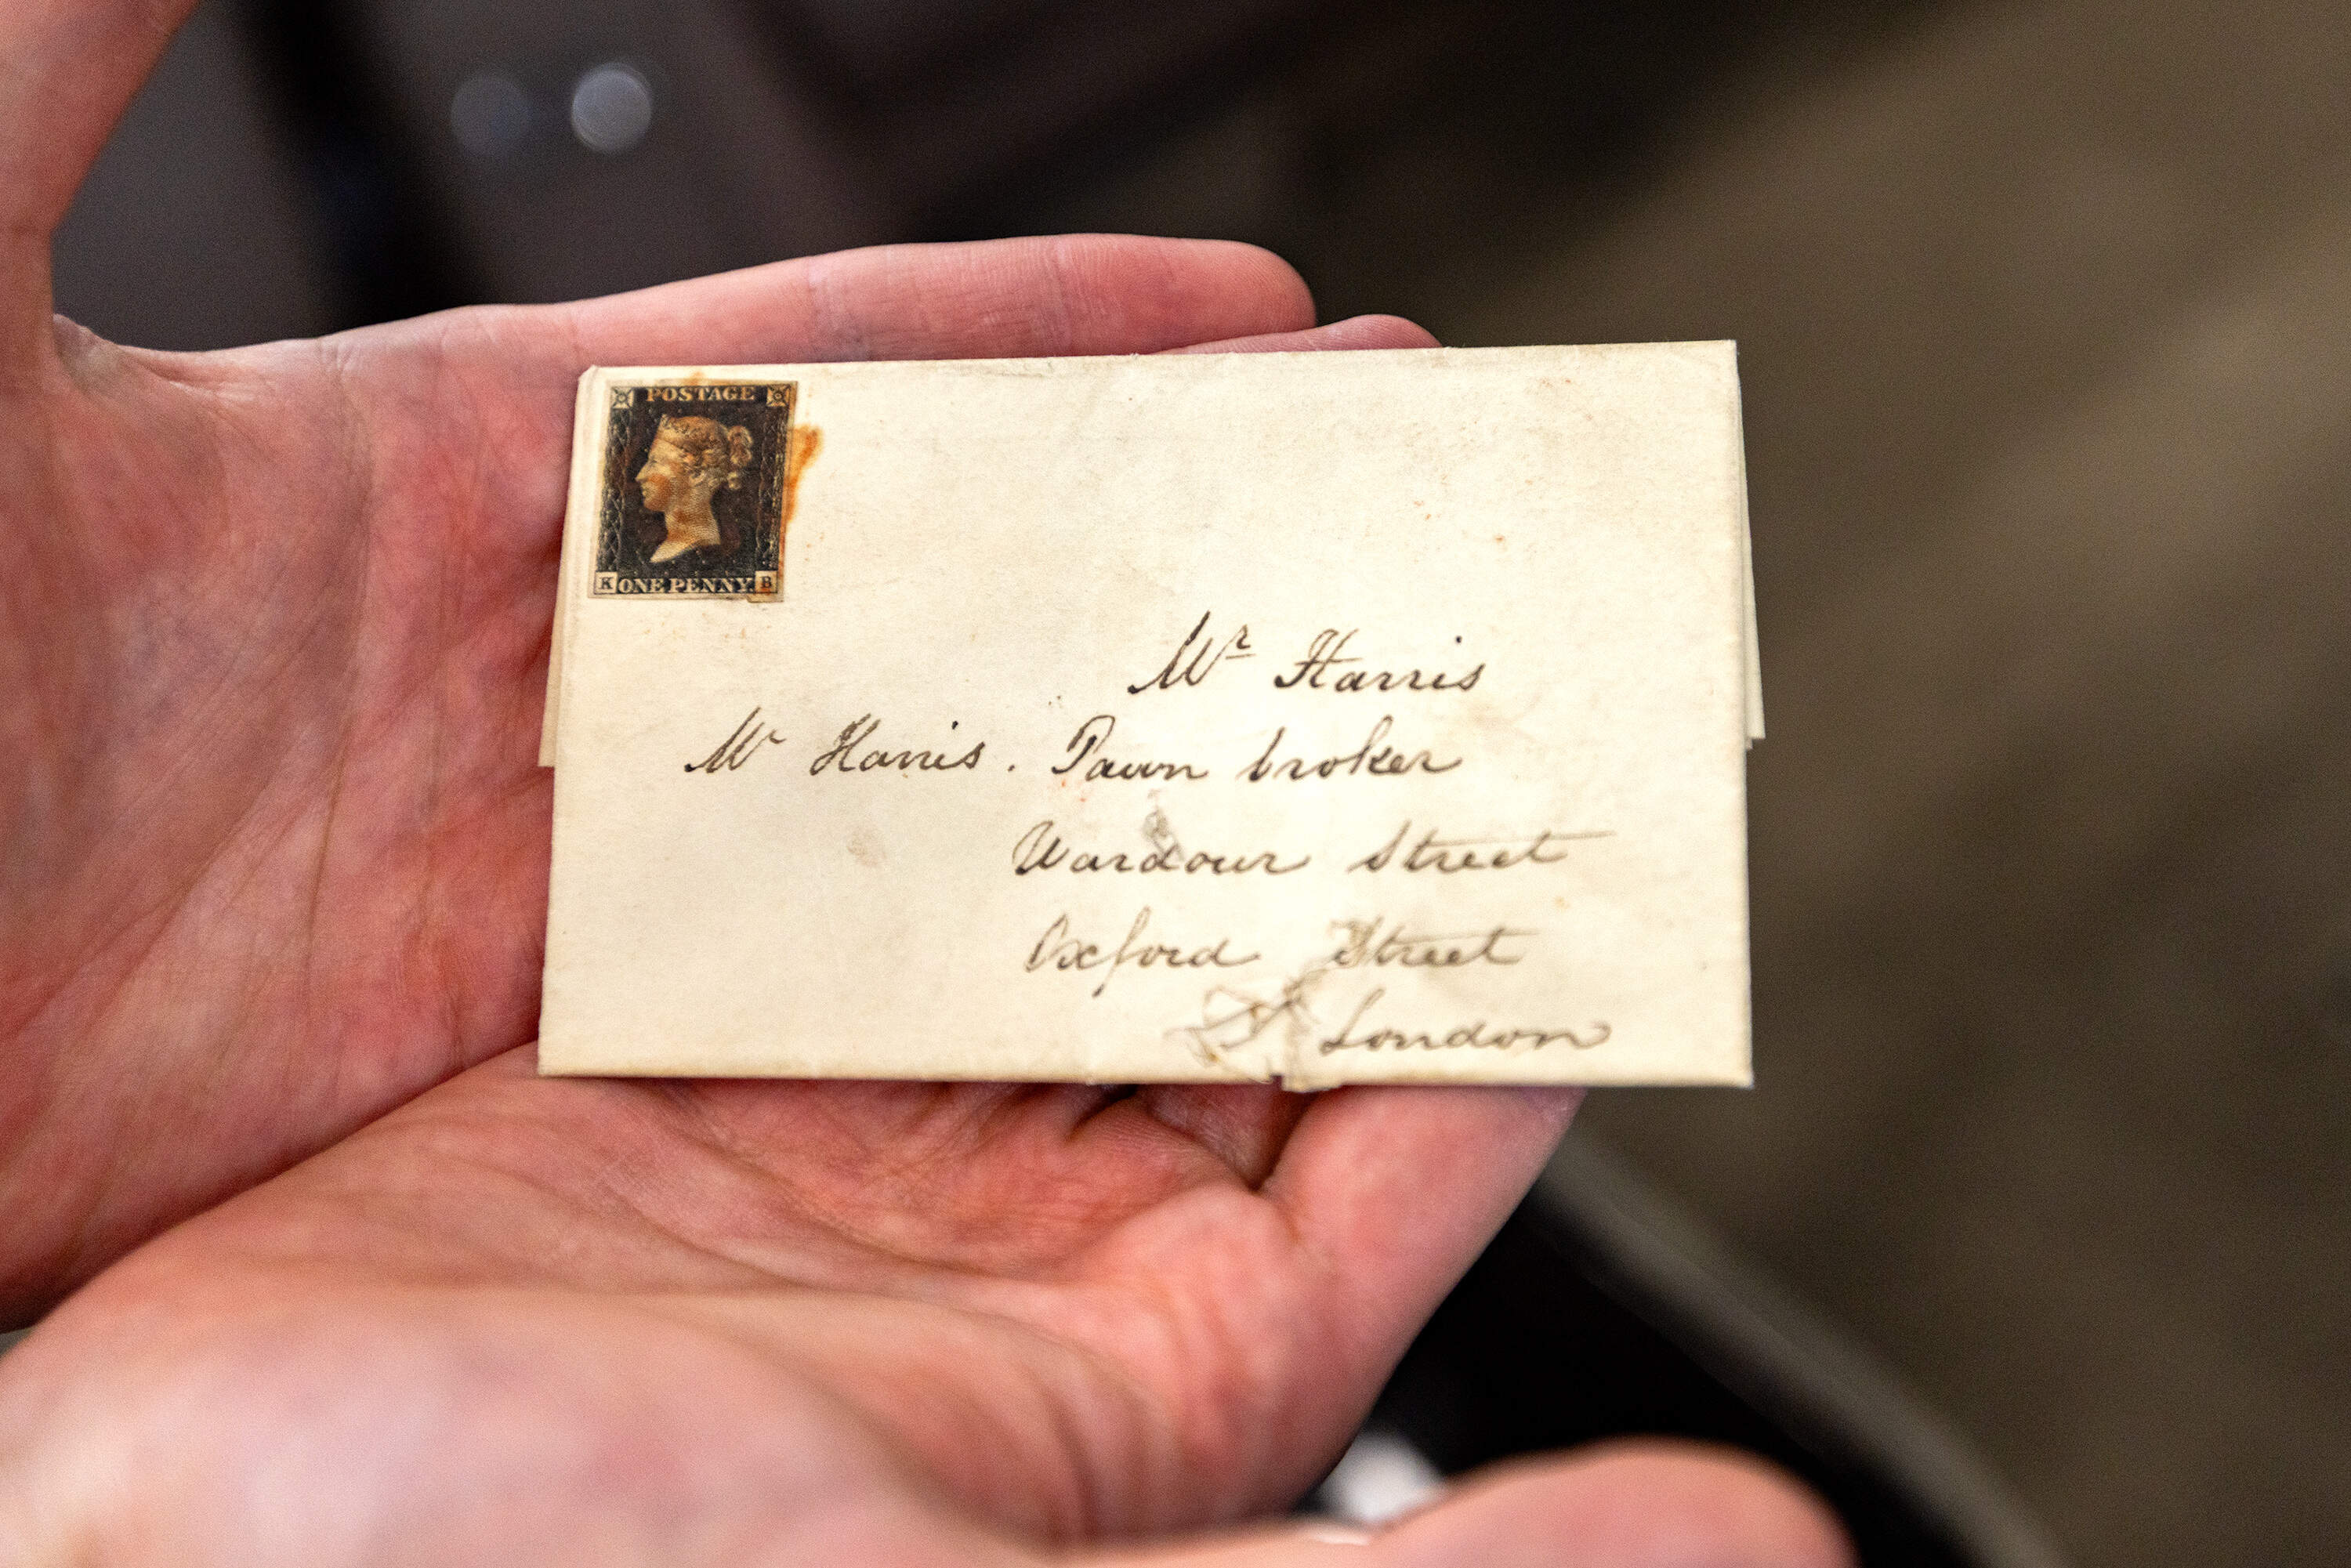 POSTAGE
K ONE PENNY. B
Mr Harris
Mr Harris. Pawn broker
Wardour Street
Oxford Street
London